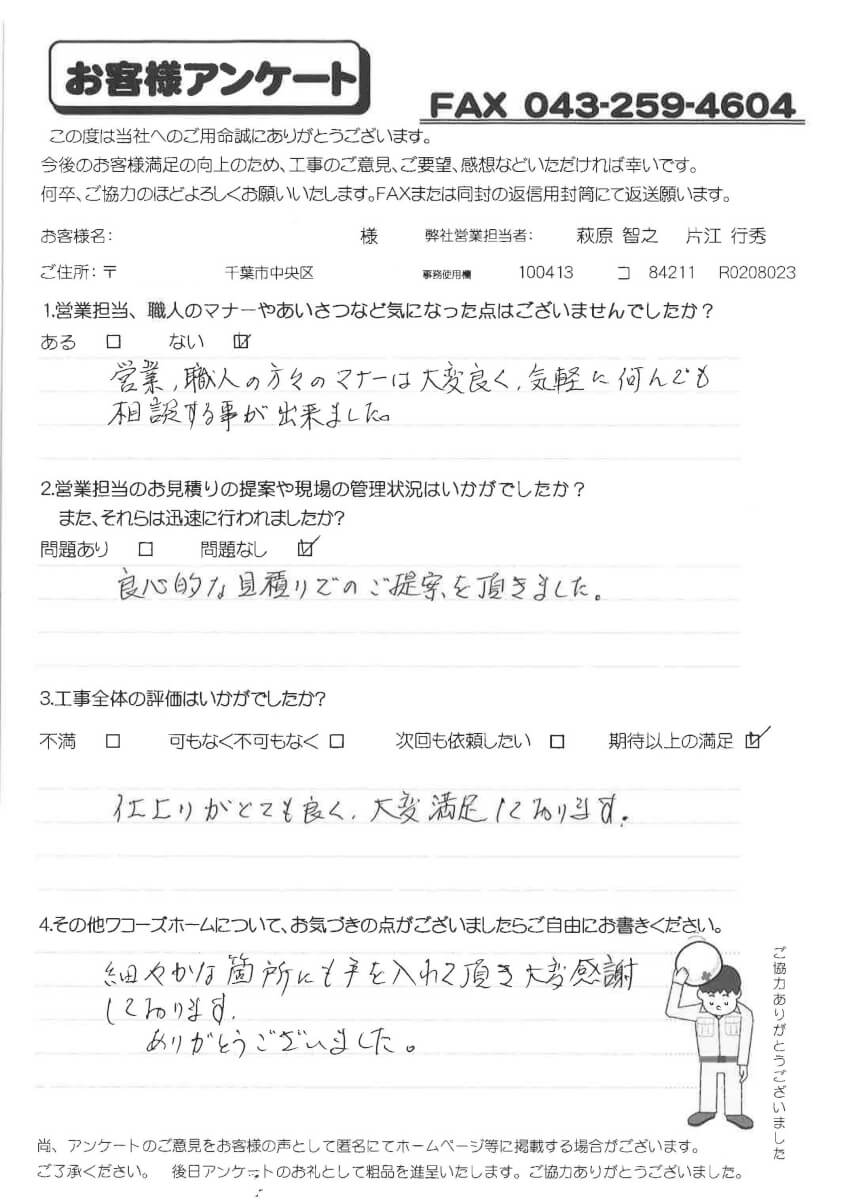 お客様アンケート
FAX 043-259-4604
この度は当社へのご用命誠にありがとうございます。
今後のお客様満足の向上のため、工事のご意見、ご要望、感想などいただければ幸いです。
何卒、ご協力のほどよろしくお願いいたします。FAXまたは同封の返信用封筒にて返送願います。
お客様名: 様 弊社営業担当者: 萩原 智之 片江 行秀
ご住所:〒 千葉市中央区 事務使用欄 100413 コ 84211 R0208023
1.営業担当、職人のマナーやあいさつなど気になった点はございませんでしたか？
ある □ ない ☑
営業,職人の方々のマナーは大変良く,気軽に何んでも
相談する事が出来ました。
2.営業担当のお見積りの提案や現場の管理状況はいかがでしたか？
また、それらは迅速に行われましたか?
問題あり □ 問題なし ☑
良心的な見積りでのご提案を頂きました。
3.工事全体の評価はいかがでしたか?
不満 □ 可もなく不可もなく □ 次回も依頼したい □ 期待以上の満足 ☑
仕上りがとても良く、大変満足しております。
4.その他ワコーズホームについて、お気づきの点がございましたらご自由にお書きください。
細々かな箇所にも手を入れて頂き大変感謝
しております.
ありがとうございました。
ご協力ありがとうございました
尚、アンケートのご意見をお客様の声として匿名にてホームページ等に掲載する場合がございます。
ご了承ください。 後日アンケートのお礼として粗品を進呈いたします。ご協力ありがとうございました。